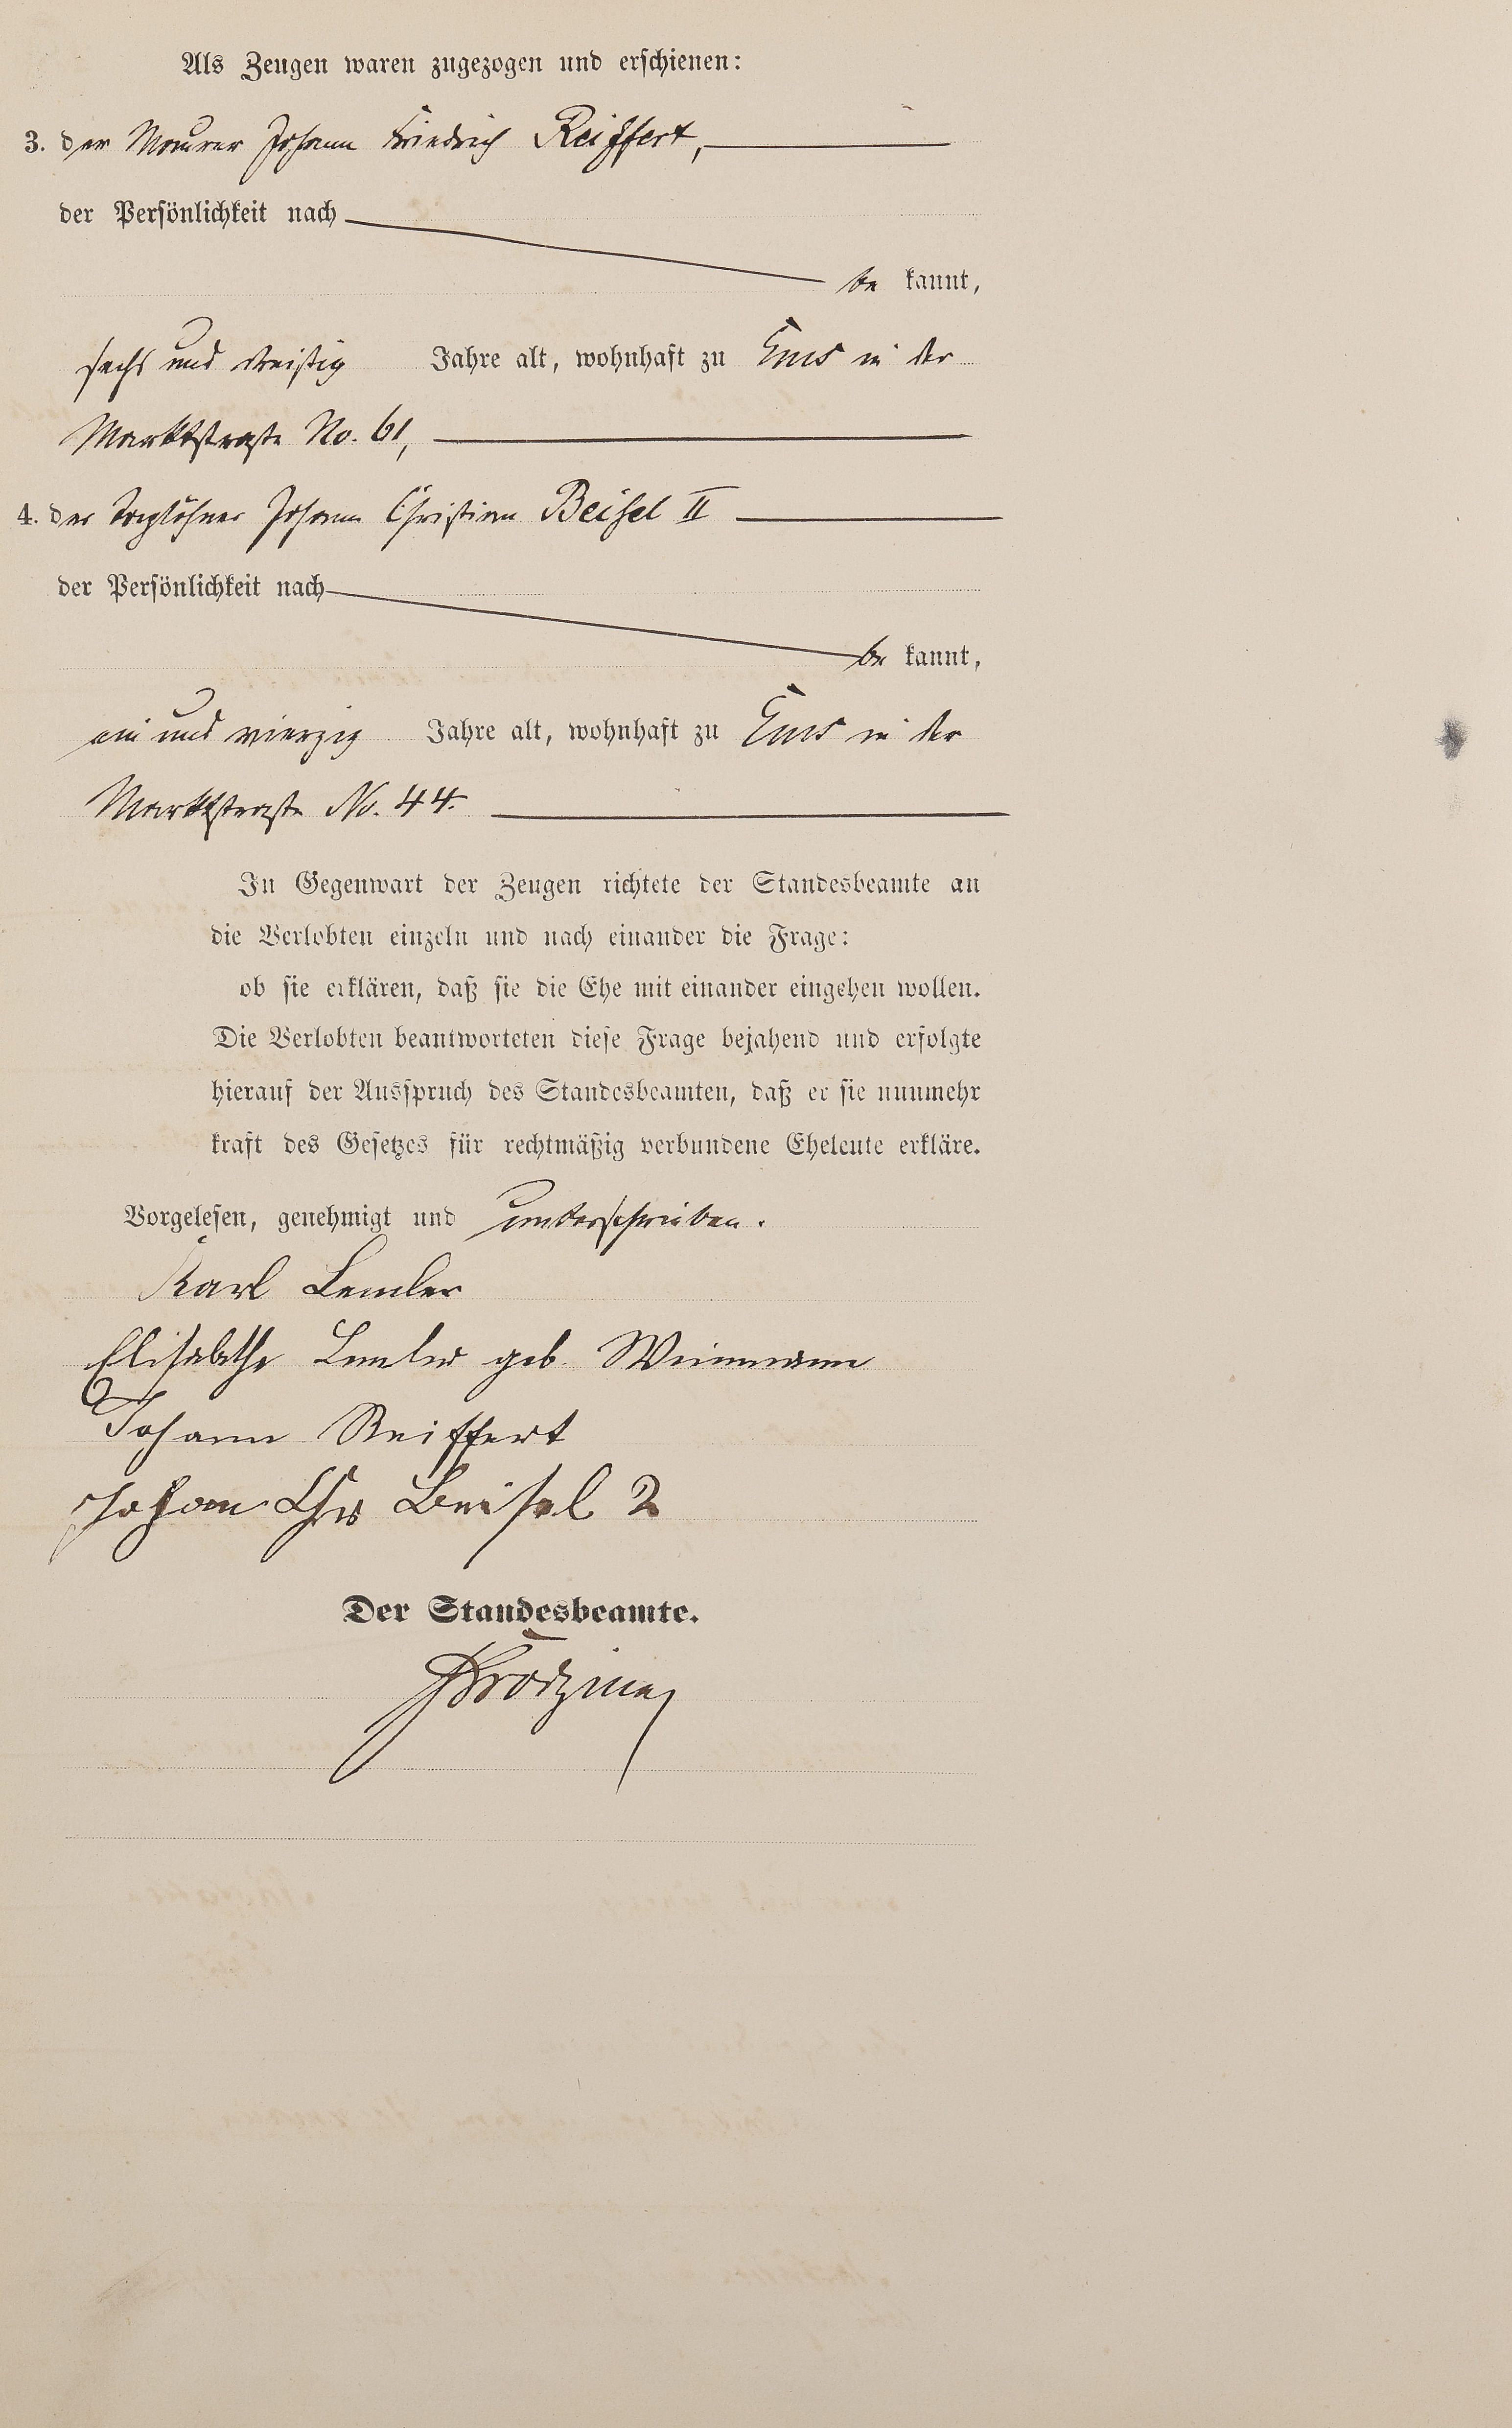 Als Zeugen waren zugezogen und erschienen:
3. der Maurer Johann Friedrich Reiffert,
der Persönlichkeit nach
be kannt,
sechs und dreißig Jahre alt, wohnhaft zu Ems in der
Marktstraße No. 61,
4. der Taglöhner Johann Christian Beisel II
der Persönlichkeit nach
be kannt,
ein und vierzig Jahre alt, wohnhaft zu Ems in der
Marktstraße No. 44.
In Gegenwart der Zeugen richtete der Standesbeamte an
die Verlobten einzeln und nach einander die Frage:
ob sie erklären, daß sie die Ehe mit einander eingehen wollen.
Die Verlobten beantworteten diese Frage bejahend und erfolgte
hierauf der Ausspruch des Standesbeamten, daß er sie nunmehr
kraft des Gesetzes für rechtmäßig verbundene Eheleute erkläre.
Vorgelesen, genehmigt und unterschrieben.
Karl Lemler
Elisabethe Lemler geb. Weinmann
Johann Reiffert
Johann Chr Beisel 2
Der Standesbeamte.